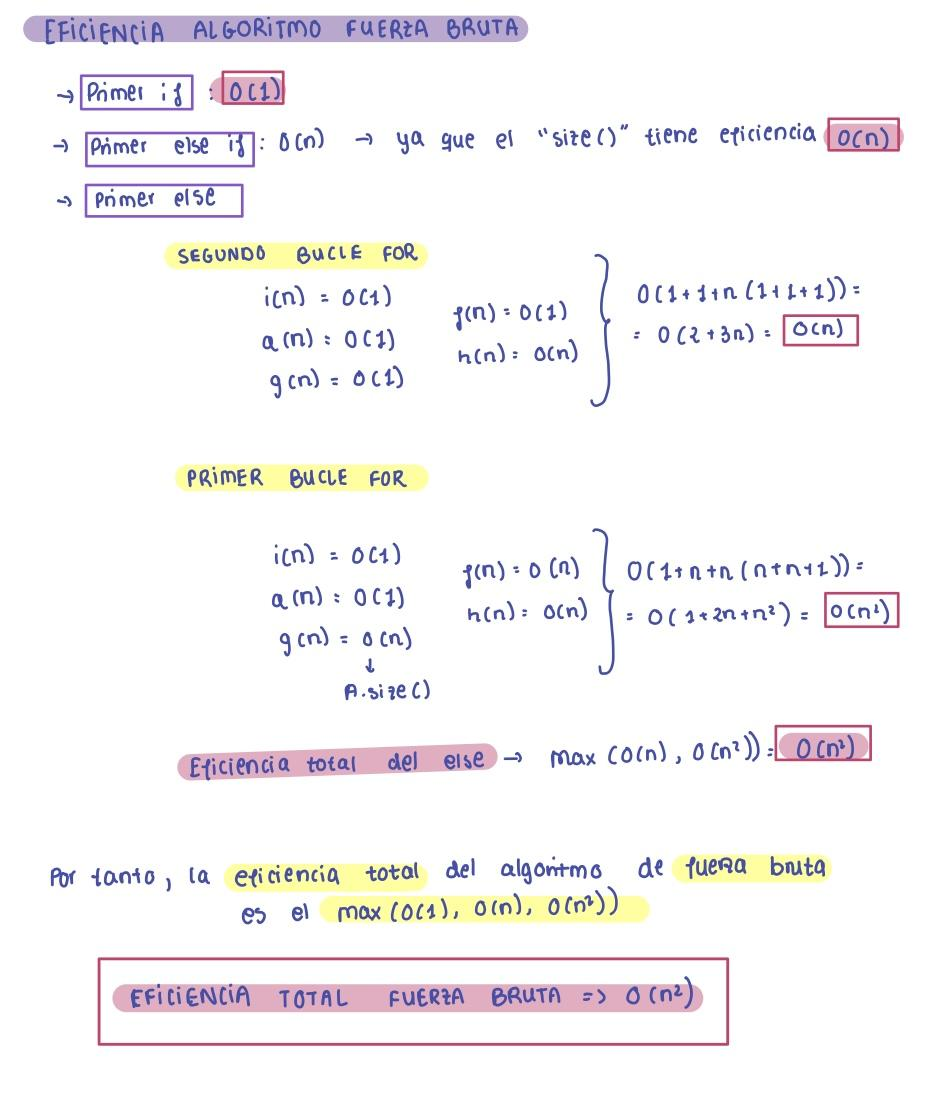 EFICIENCIA ALGORITMO FUERZA BRUTA
→ Primer if : O(1)
→ Primer else if : O(n) → ya que el "size()" tiene eficiencia O(n)
→ Primer else
SEGUNDO BUCLE FOR
i(n) = O(1)
a(n) = O(1)
g(n) = O(1)
f(n) = O(1)
h(n) = O(n)
O(1+1+n(1+1+1)) =
= O(2+3n) = O(n)
PRIMER BUCLE FOR
i(n) = O(1)
a(n) = O(1)
g(n) = O(n)
↓
A.size()
f(n) = O(n)
h(n) = O(n)
O(1+n+n(n+n+1)) =
= O(1+2n+n²) = O(n²)
Eficiencia total del else → max(O(n), O(n²)) = O(n²)
Por tanto, la eficiencia total del algoritmo de fuerza bruta
es el max(O(1), O(n), O(n²))
EFICIENCIA TOTAL FUERZA BRUTA => O(n²)